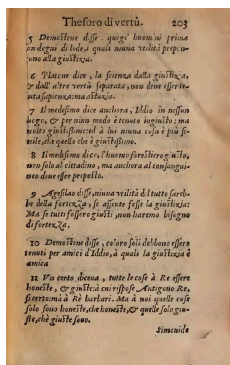 Thesoro di vertù. 203
5 Demostene disse. quegl' huomini prima
on degni di lode, a quali niuna vtilità prepon-
ono alla giustizia.
6 Platone dice, la scienza dalla giustizia,
& dall' altre vertù separata, non deue esser te-
nuta sapienza, ma astuzia.
7 Il medesimo dice anchora, Iddio in nessun
luogo, & per niun modo è tenuto ingiusto; ma
molto giustissimo: ed à lui niuna cosa è più si-
mile, che quello che è giustissimo.
8 Il medesimo dice, l'huomo forestiero giusto,
non solo al cittadino, ma anchora al consangui-
neo deue esser preposto.
9 Agesilao disse, niuna vtilità del tutto sareb-
be della fortezza, se assente fesse la giustizia:
Ma se tutti fossero giusti, non haremo bisogno
di fortezza.
10 Demostene disse, coloro soli debbono essere
tenuti per amici d'Iddio, à quali la giustizia è
amica
11 Vn certo diceua, tutte le cose à Re essere
honeste, & giuste: à cui rispose Antigono Re,
si certo: mà à Rè barbari. Ma à noi quelle cose
solo sono honeste, che honeste, & quelle solo giu-
ste, chè giuste sono.
Simonide